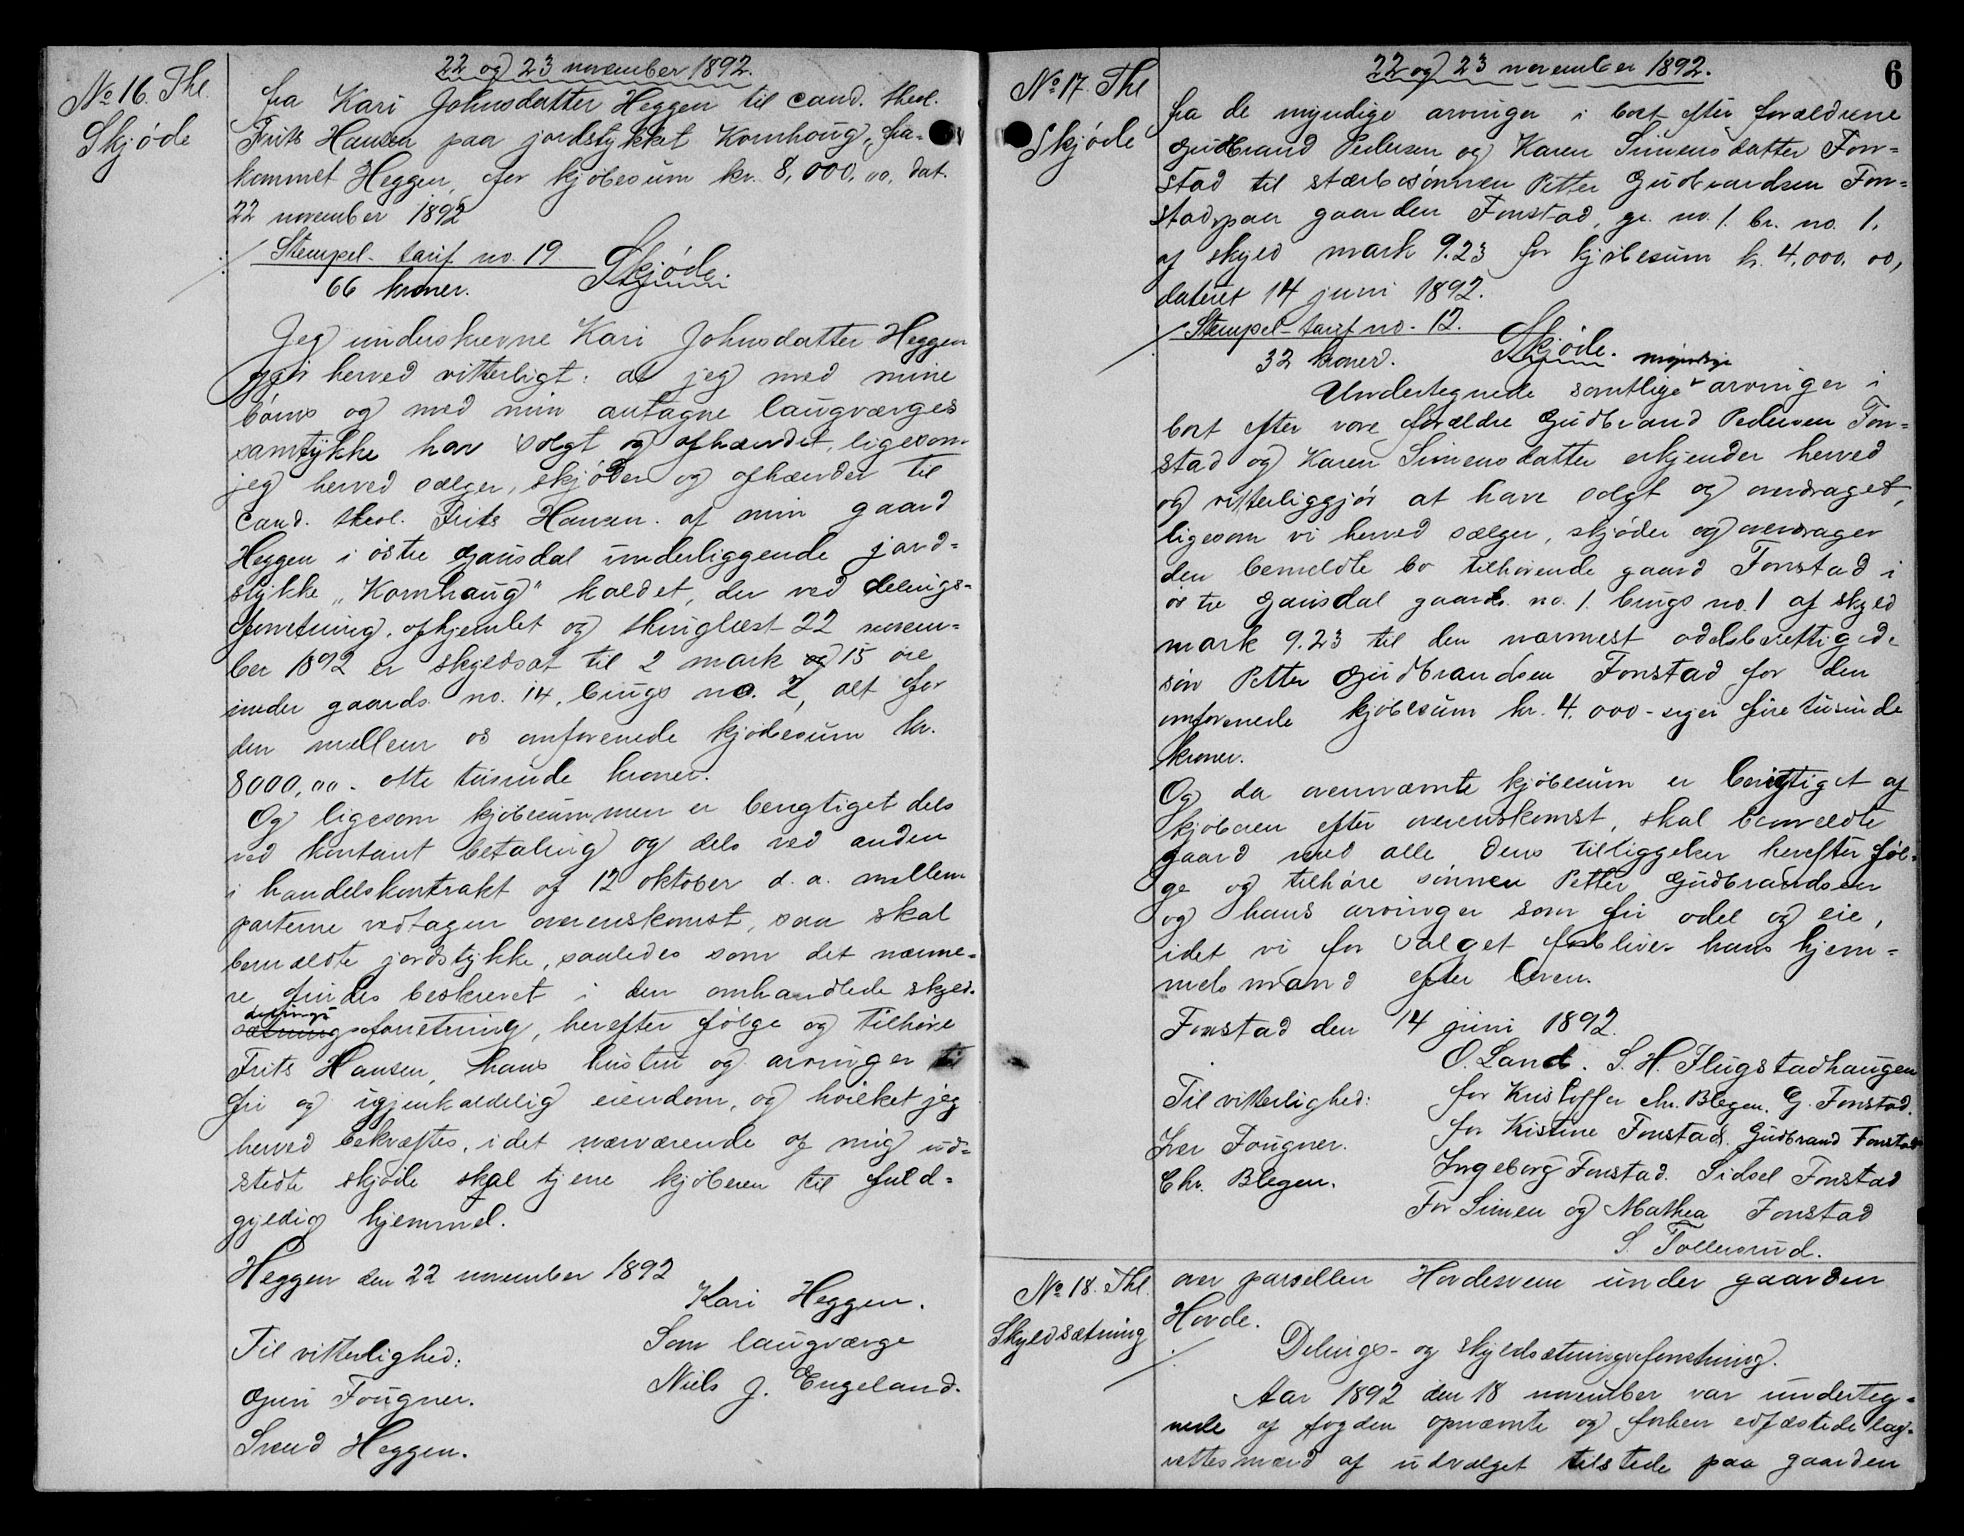 22 og 23 november 1892.
No 16. Thl.
Skjøde
fra Kari Johnsdatter Heggen til cand. theol.
Frits Hansen paa jordstykket Kornhoug, fra-
kommet Heggen, for kjøbesum kr. 8,000,00, dat.
22 november 1892
Stempel-tarif no. 19.
66 kroner.
Skjøde.
Jeg underskrevne Kari Johnsdatter Heggen
gjør herved vitterligt: at jeg med mine
børns og med min antagne laugværges
samtykke har solgt og afhændet, ligesom
jeg herved sælger, skjøder og afhænder til
cand. theol. Frits Hansen af min gaard
Heggen i østre Gausdal underliggende jord-
stykke „Kornhaug" kaldet, der ved delings-
forretning, afhjemlet og thinglæst 22 novem-
ber 1892 er skyldsat til 2 mark og 15 øre
under gaards no. 14, brugs no. 2, alt for
den mellem os omforenede kjøbesum kr.
8000,00 - otte tusinde kroner.
Og ligesom kjøbesummen er berigtiget dels
ved kontant betaling og dels ved anden
i handelskontrakt af 12 oktober d. a. mellem
parterne vedtagen overenskomst, saa skal
bemældte jordstykke, saaledes som det nærme-
re findes beskrevet i den omhandlede skyld-
delings
sætningsforretning, herefter følge og tilhøre
Frits Hansen, hans hustru og arvinger til
fri og igjenkaldelig eiendom, og hvilket jeg
herved bekræftes, idet nærværende af mig ud-
stedte skjøde skal tjene kjøberen til fuld-
gyldig hjemmel.
Heggen den 22 november 1892
Kari Heggen.
Som laugværge
Niels J. Engeland.
Til vitterlighed:
Guri Fougner.
Svend Heggen.
6
22 og 23 november 1892.
No 17. Thl
Skjøde
fra de myndige arvinger i boet efter forældrene
Gudbrand Pedersen og Karen Simensdatter Fon-
stad til stærbosønnen Petter Gudbrandsen Fon-
stad paa gaarden Fonstad, gr. no. 1. br. no. 1.
af skyld mark 9.23 for kjøbesum kr. 4,000,00,
dateret 14 juni 1892.
Stempel-tarif no. 12.
32 kroner.
Skjøde.
myndige
Undertegnede samtlige arvinger i
boet efter vore forældre Gudbrand Pedersen Fon-
stad og Karen Simensdatter erkjender herved
og vitterliggjør at have solgt og overdraget,
ligesom vi herved sælger, skjøder og overdrager
den bemeldte bo tilhørende gaard Fonstad i
østre Gausdal gaards no. 1. brugs no. 1 af skyld
mark 9.23 til den nærmest odelsberettigede
søn Petter Gudbrandsen Fonstad for den
omforenede kjøbesum kr. 4.000 - siger fire tusinde
kroner.
Og da overnævnte kjøbesum er berigtiget af
kjøberen efter overenskomst, skal bemeldte
gaard med alle dens tilliggelser herefter føl-
ge og tilhøre sønnen Petter Gudbrandsen
og hans arvinger som fri odel og eie,
idet vi for salget forbliver hans hjem-
mels mænd efter loven.
Fonstad den 14 juni 1892.
O. Land. S. H. Flugstadhaugen
for Kristoffer Chr. Blegen. G. Fonstad.
for Kistine Fonstad. Gudbrand Fonstad
Ingeborg Fonstad. Sidsel Fonstad
For Simen og Mathea Fonstad
S. Tollersrud.
Til vitterlighed:
Iver Fougner.
Chr. Blegen.
No 18. Thl.
Skyldsætning
over parsellen Hovdesveen under gaarden
Hovde.
Delings- og skyldsætningsforretning.
Aar 1892 den 18 november var underteg-
nede af fogden opnævnte og forhen edfæstede lag-
rettesmænd af udvalget tilstede paa gaarden